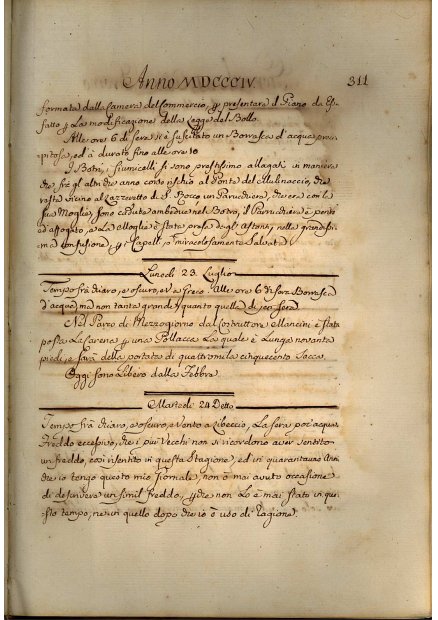 Anno MDCCCIV 311
formata dalla Camera del Commercio, p presentare il Piano da Es-
fatto p La modificazione della Legge del Bollo.
Alle ore 6 di sera si è suscitato un Borrasca d'acqua preci-
pitosa, ed à durato fino alle ore 10
I Botri, i fiumicelli si sono prestissimo allagati in maniera
che frà gl'altri che anno corso rischio al Ponte del Mulinaccio, che
resta vicino al Lazzeretto di S. Rocco un Parucchiera, che era con la
sua Moglie, sono caduti ambidue nel Botro, il Parrucchiere è perito
ed affogato, e La Moglie è stata presa dagl'Astanti nella grandissi-
ma confusione p i Capelli, e miracolosamente Salvata
Lunedì 23 Luglio
Tempo frà chiaro, e oscuro, ed a fresco. Alle ore 6 di sera Borrasca
d'acqua, ma non tanto grande quanto quella di jeri sera
Nel Parco di Mezzogiorno dal Costruttore Mancini è stata
posta La Carena p una Pollacca La quale è Lunga novanta
piedi, e sarà della portata di quattromila cinquecento Sacca.
Oggi sono Libero dalla Febbre.
Martedì 24 Detto
Tempo frà chiaro, e oscuro, e vento a Libeccio, La sera poi acqua,
Freddo eccessivo, che i più Vecchi non si ricordono aver sentito
un freddo, così risentito in questa Stagione, ed in quarantauno Anni
che io tengo questo mio Giornale, non ò mai avuto occasione
di descrivere un simil Freddo, p che non Lo è mai stato in que-
sto tempo, ne in quello dopo che io ò uso di Ragione.